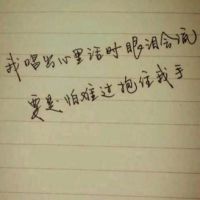 我唱出心里话时眼泪会流
要是怕难过抱住我手